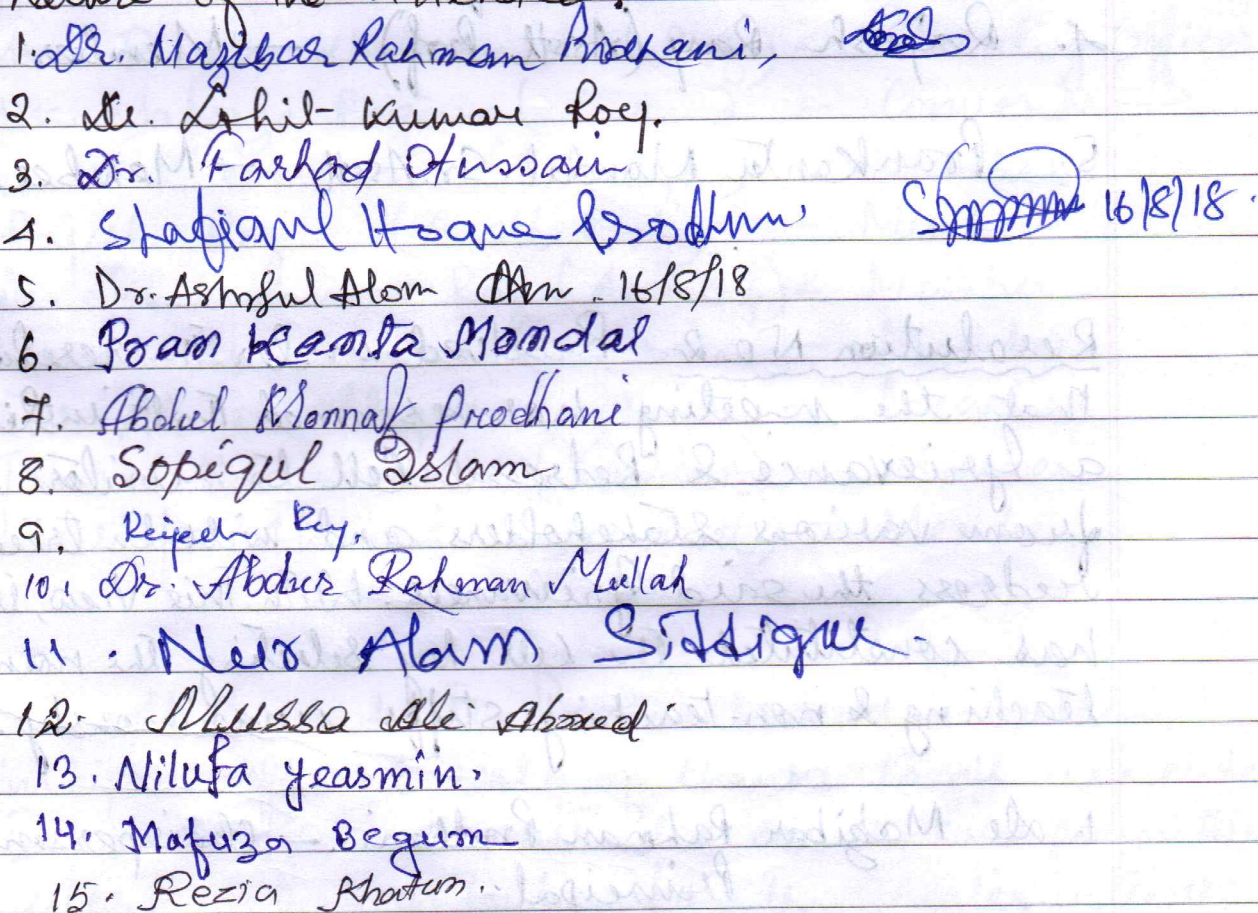 1. Dr. Mazibar Rahman Prodhani,
2. Dr. Lohit Kumar Roy.
3. Dr. Farhad Hussain
4. Shafiqul Hoque Prodhani 16/8/18.
5. Dr. Ashraful Alom 16/8/18
6. Pran Kanta Mondal
7. Abdul Monnaf Prodhani
8. Sopiqul Islam
9. Roy.
10. Dr. Abdur Rahman Mullah
11. Nur Alam Siddique.
12. Mussa Ali Ahmed
13. Nilufa Yeasmin.
14. Mafuza Begum
15. Rezia Khatun.